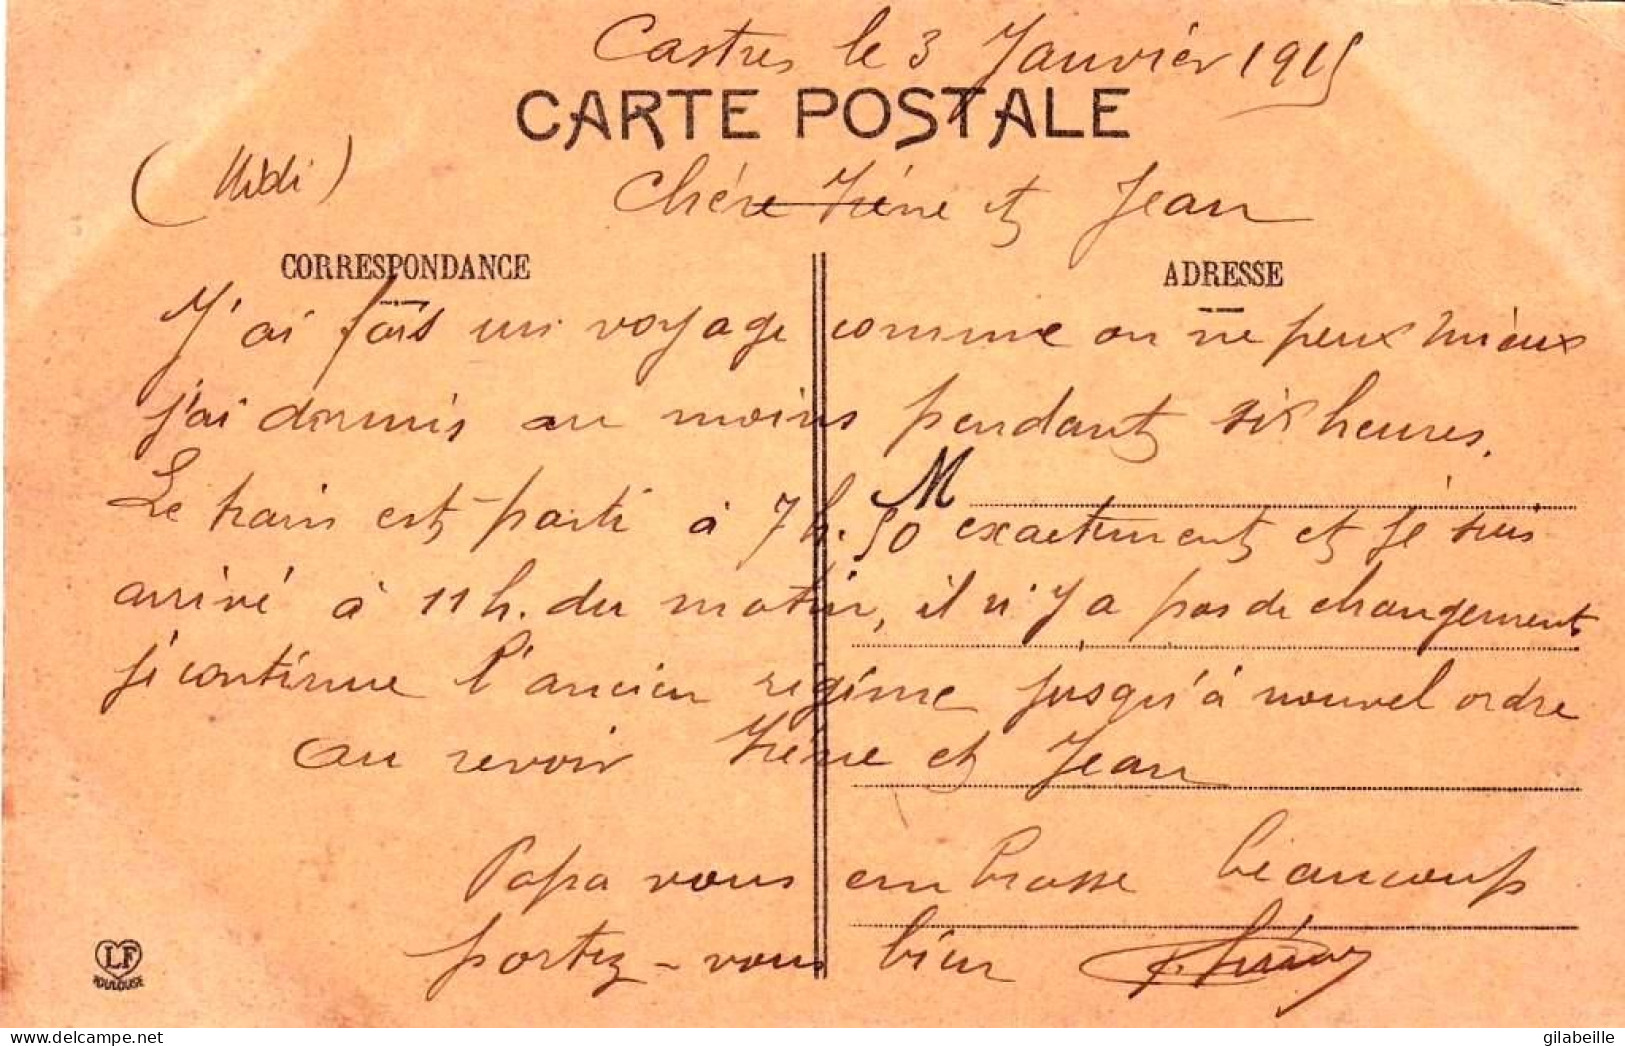 Castres le 3 Janvier 1915
CARTE POSTALE
(Midi)
Chére Iréne et Jean
CORRESPONDANCE
ADRESSE
J'ai fais un voyage comme on ne peux mieux
j'ai dormis au moins pendant six heures.
M
Le train est parti à 7h.50 exactement et je suis
arrivé à 11h. du matin, il n'y a pas de changement
je continue l'ancien régime jusqu'à nouvel ordre
au revoir Iréne et Jean
Papa vous embrasse beaucoup
portez-vous bien
LF
TOULOUSE
delcampe.net
gilabeille